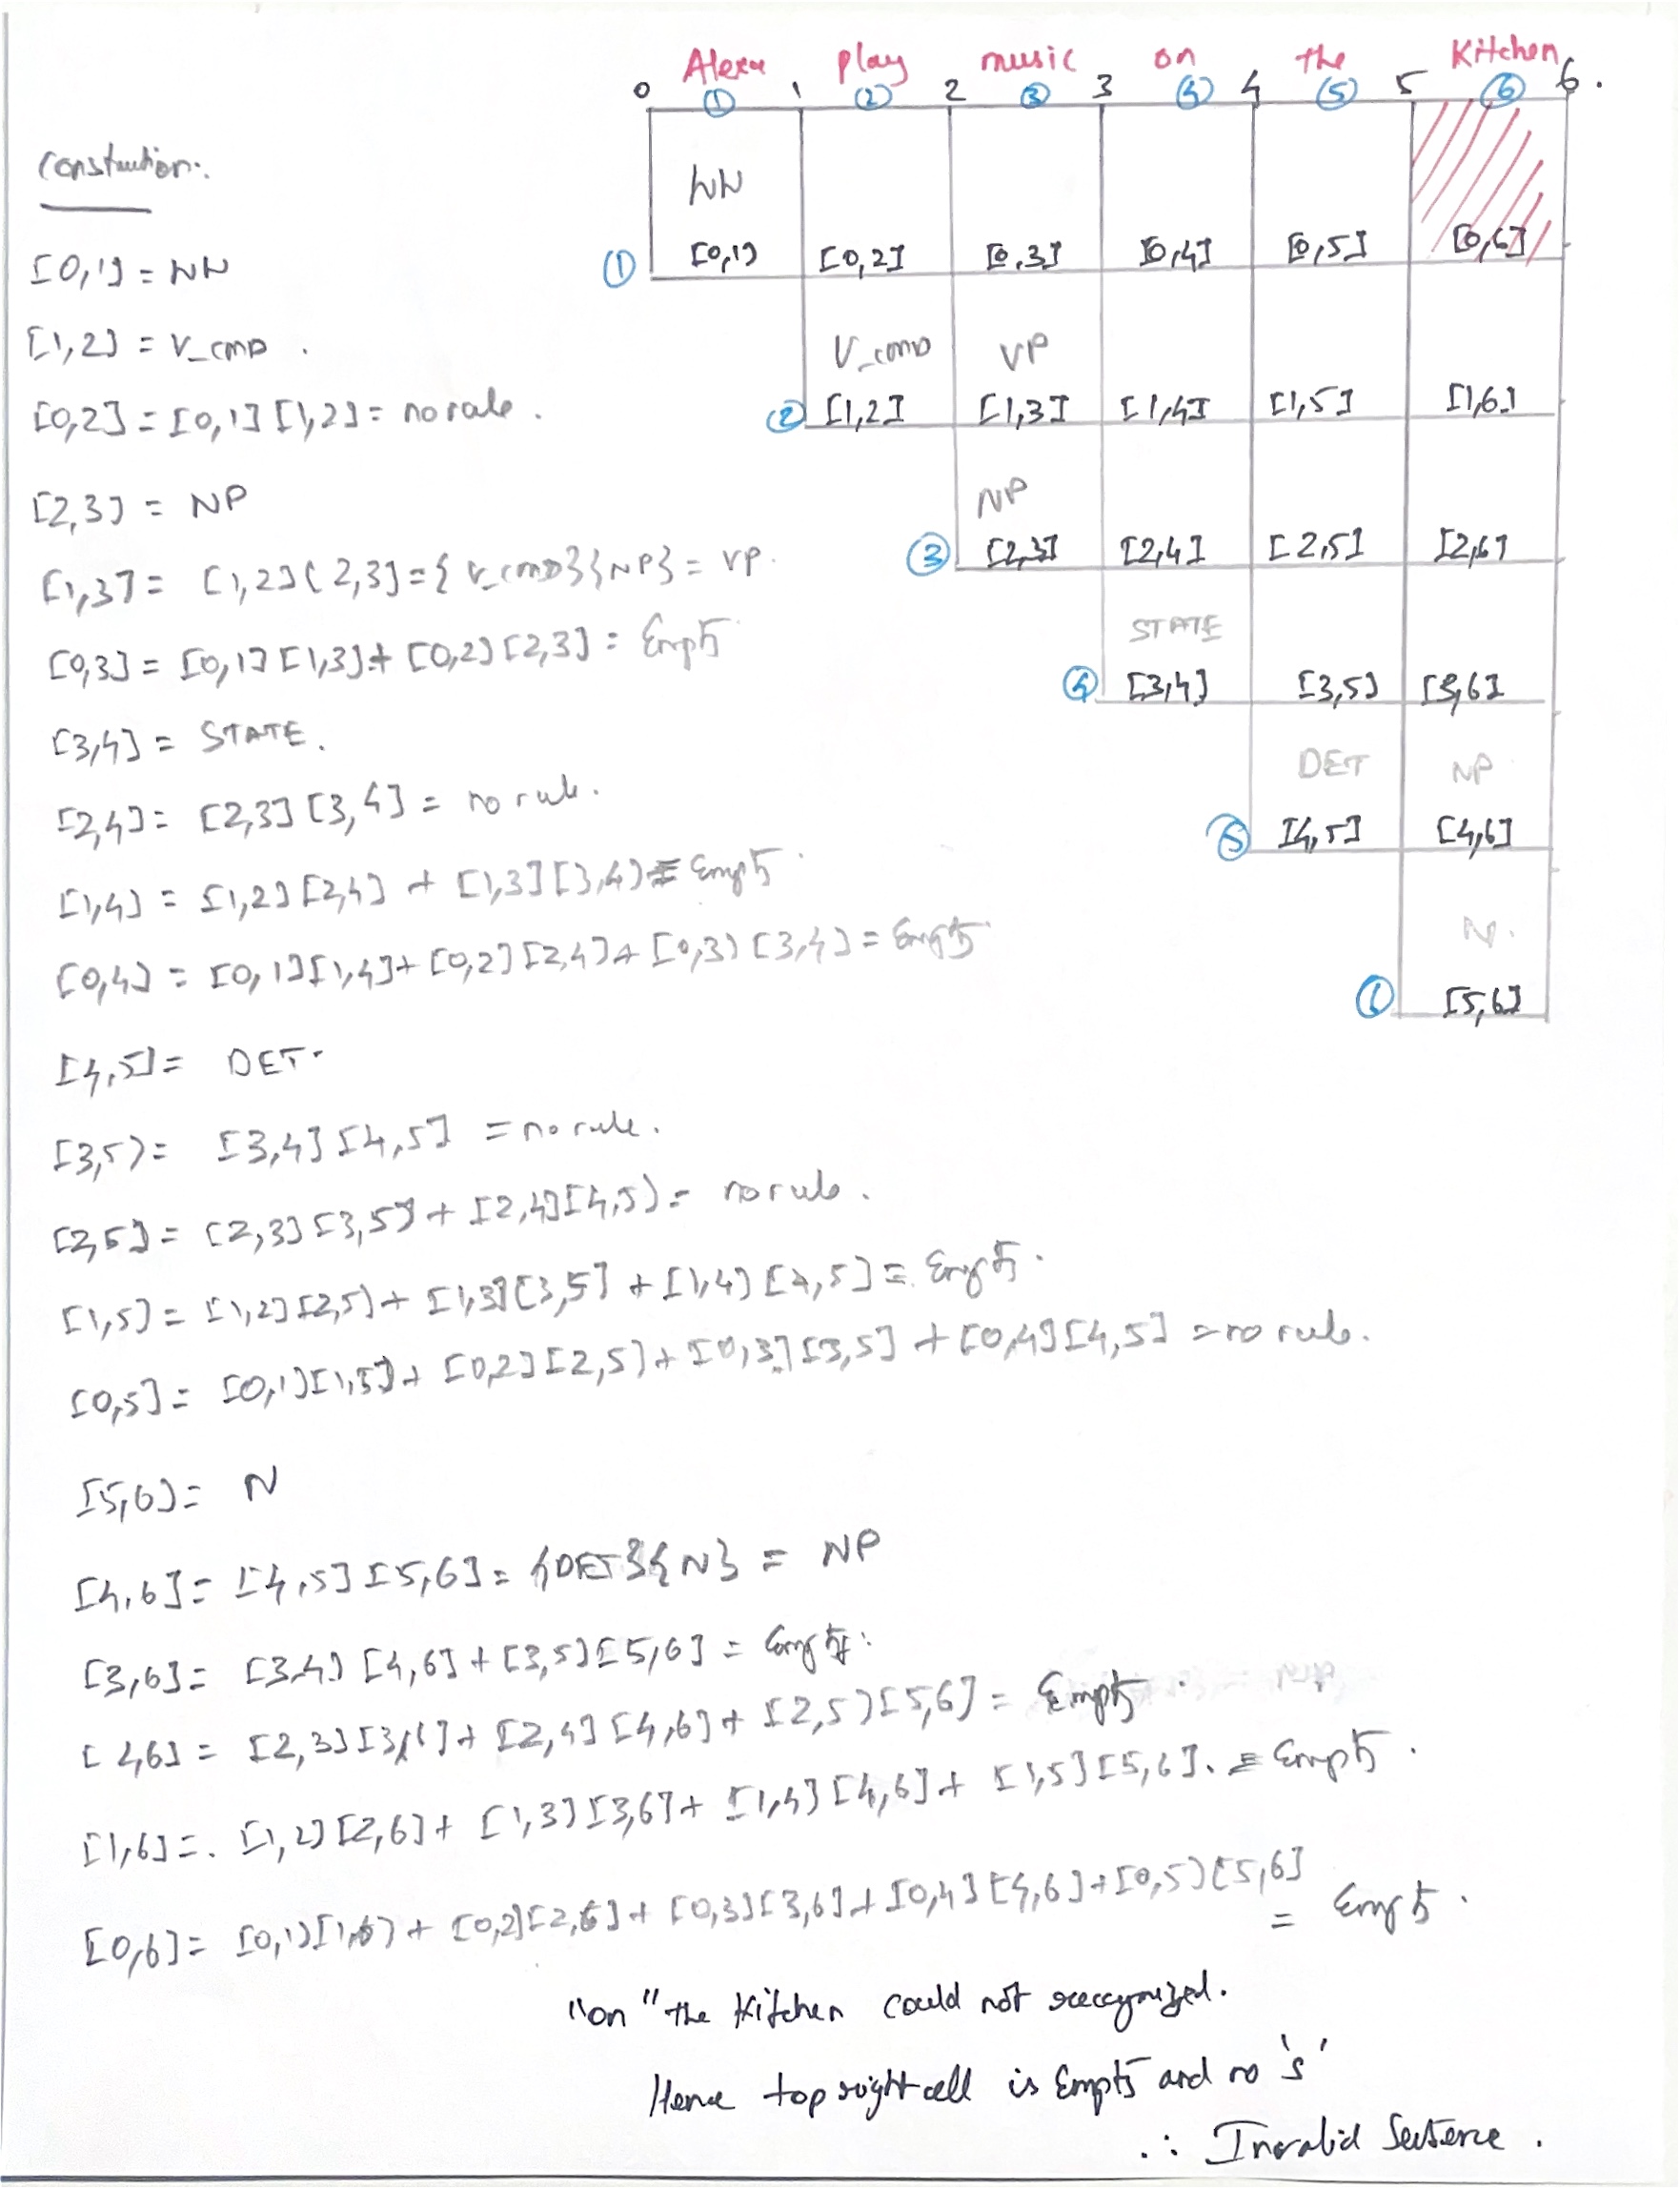 Alexa play music on the Kitchen
0 1 2 3 4 5 6 .
① ② ③ ④ ⑤ ⑥
Construction:
NN
① [0,1] [0,2] [0,3] [0,4] [0,5] [0,6]
V_CMD VP
② [1,2] [1,3] [1,4] [1,5] [1,6]
NP
③ [2,3] [2,4] [2,5] [2,6]
STATE
④ [3,4] [3,5] [3,6]
DET NP
⑤ [4,5] [4,6]
N.
⑥ [5,6]
[0,1] = NN
[1,2] = V_CMD .
[0,2] = [0,1] [1,2] = no rule .
[2,3] = NP
[1,3] = [1,2] [2,3] = {V_CMD}{NP} = VP.
[0,3] = [0,1] [1,3] + [0,2] [2,3] = Empty
[3,4] = STATE.
[2,4] = [2,3] [3,4] = no rule.
[1,4] = [1,2] [2,4] + [1,3] [3,4] = Empty.
[0,4] = [0,1] [1,4] + [0,2] [2,4] + [0,3] [3,4] = Empty
[4,5] = DET.
[3,5] = [3,4] [4,5] = no rule.
[2,5] = [2,3] [3,5] + [2,4] [4,5] = no rule .
[1,5] = [1,2] [2,5] + [1,3] [3,5] + [1,4] [4,5] = Empty.
[0,5] = [0,1] [1,5] + [0,2] [2,5] + [0,3] [3,5] + [0,4] [4,5] = no rule.
[5,6] = N
[4,6] = [4,5] [5,6] = {DET}{N} = NP
[3,6] = [3,4] [4,6] + [3,5] [5,6] = Empty.
[2,6] = [2,3] [3,6] + [2,4] [4,6] + [2,5] [5,6] = Empty .
[1,6] = . [1,2] [2,6] + [1,3] [3,6] + [1,4] [4,6] + [1,5] [5,6]. = Empty .
[0,6] = [0,1] [1,6] + [0,2] [2,6] + [0,3] [3,6] + [0,4] [4,6] + [0,5] [5,6]
= Empty .
"on" the Kitchen could not
Hence top right cell is Empty and no 's'
∴ Invalid Sentence .